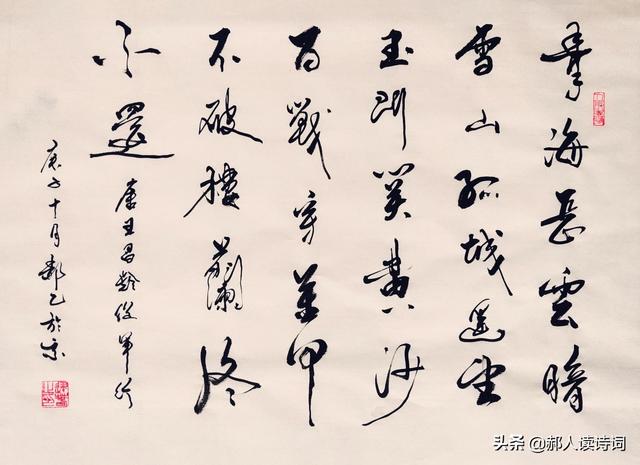 青海長雲暗
雪山孤城遥望
玉門关黄沙
百戰穿金甲
不破樓蘭終
不還
唐王昌齡從軍行
庚子十月 於京
头条 @郝人读诗词